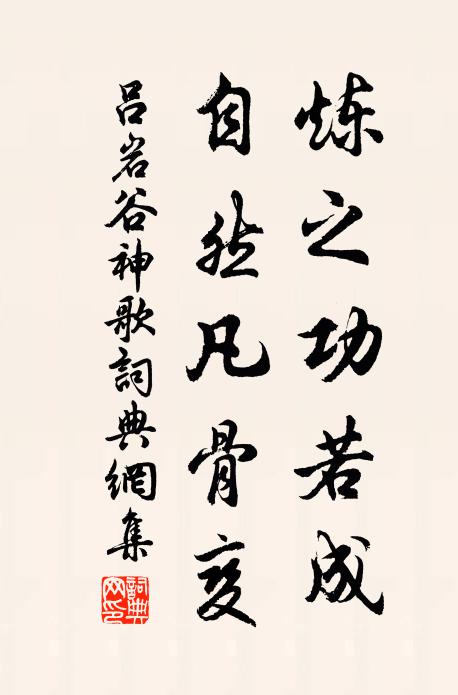 炼之功若成
自然凡骨变
吕岩谷神歌詞典網集
詞典网印